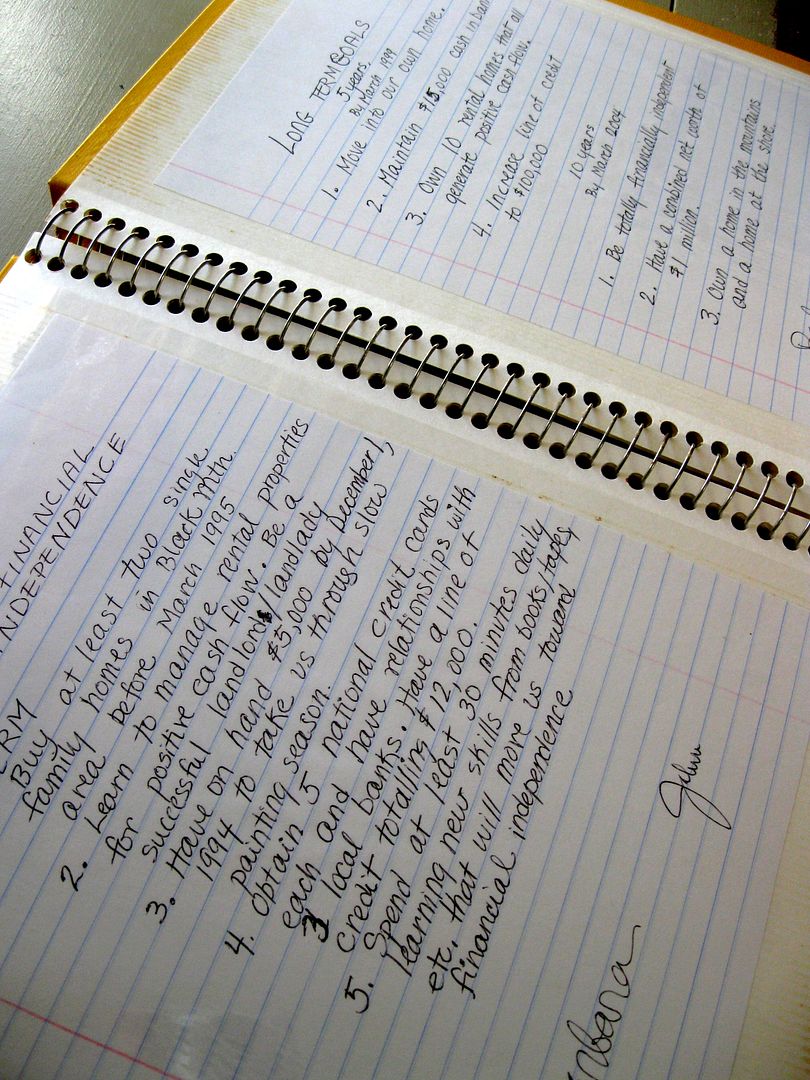 FINANCIAL
INDEPENDENCE
ERM
Buy at least two single
family homes in Black Mtn.
area before March 1995
2. Learn to manage rental properties
for positive cash flow. Be a
successful landlord/landlady
3. Have on hand $5,000 by December 1,
1994 to take us through slow
painting season.
4. Obtain 5 national credit cards
each and have relationships with
3 local banks. Have a line of
credit totalling $12,000.
5. Spend at least 30 minutes daily
learning new skills from books/tapes,
etc. that will move us toward
financial independence
LONG TERM GOALS
5 years,
by March 1999
1. Move into our own home.
2. Maintain $15,000 cash in bank
3. Own 10 rental homes that all
generate positive cash flow.
4. Increase line of credit
to $100,000
10 years
By March 2004
1. Be totally financially independent
2. Have a combined net worth of
$1 million.
3. Own a home in the mountains
and a home at the shore